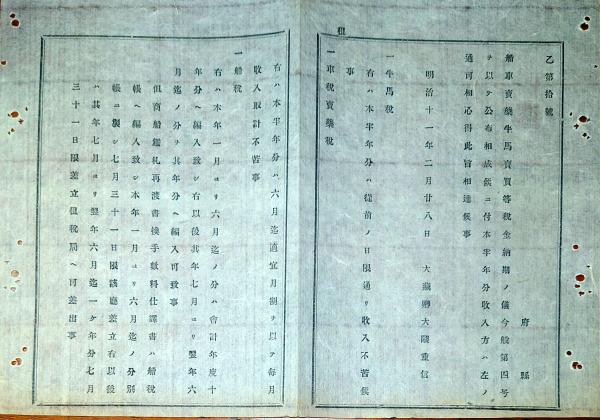 乙第拾號
府縣
船車賣藥牛馬賣買等稅金納期ノ儀今般第四号
ヲ以テ公布相成候ニ付本半年分收入方ハ左ノ
通可相心得此旨相達候事
明治十一年二月廿八日 大藏卿大隈重信
一牛馬稅
右ハ本半年分ハ從前ノ日限通リ收入不苦候
事
一車稅賣藥稅
租
右ハ本半年分ハ六月迄適宜月割ヲ以テ每月
收入取計不苦事
一船稅
右ハ本年一月ヨリ六月迄ノ分ハ會計年度十
年分ヘ編入致シ右以後其年七月ヨリ翌年六
月迄ノ分ヲ其年分ヘ編入可致事
但商船鑑札再渡書換手數料仕譯書ハ船稅
帳ヘ編入致シ本年一月ヨリ六月迄ノ分別
帳ニ製シ七月三十一日限該廳差立右以後
ハ其年七月ヨリ翌年六月迄一ケ年分七月
三十一日限差立租稅局ヘ可差出事